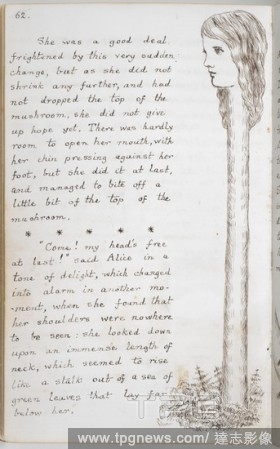 62.
She was a good deal
frightened by this very sudden
change, but as she did not
shrink any further, and had
not dropped the top of the
mushroom, she did not give
up hope yet. There was hardly
room to open her mouth, with
her chin pressing against her
foot, but she did it at last,
and managed to bite off a
little bit of the top of the
mushroom.
* * * * *
"Come! my head's free
at last!" said Alice in a
tone of delight, which changed
into alarm in another mo-
-ment, when she found that
her shoulders were nowhere
to be seen: she looked down
upon an immense length of
neck, which seemed to rise
like a stalk out of a sea of
green leaves that lay far
below her.
www.tpgnews.com/ 達志影像